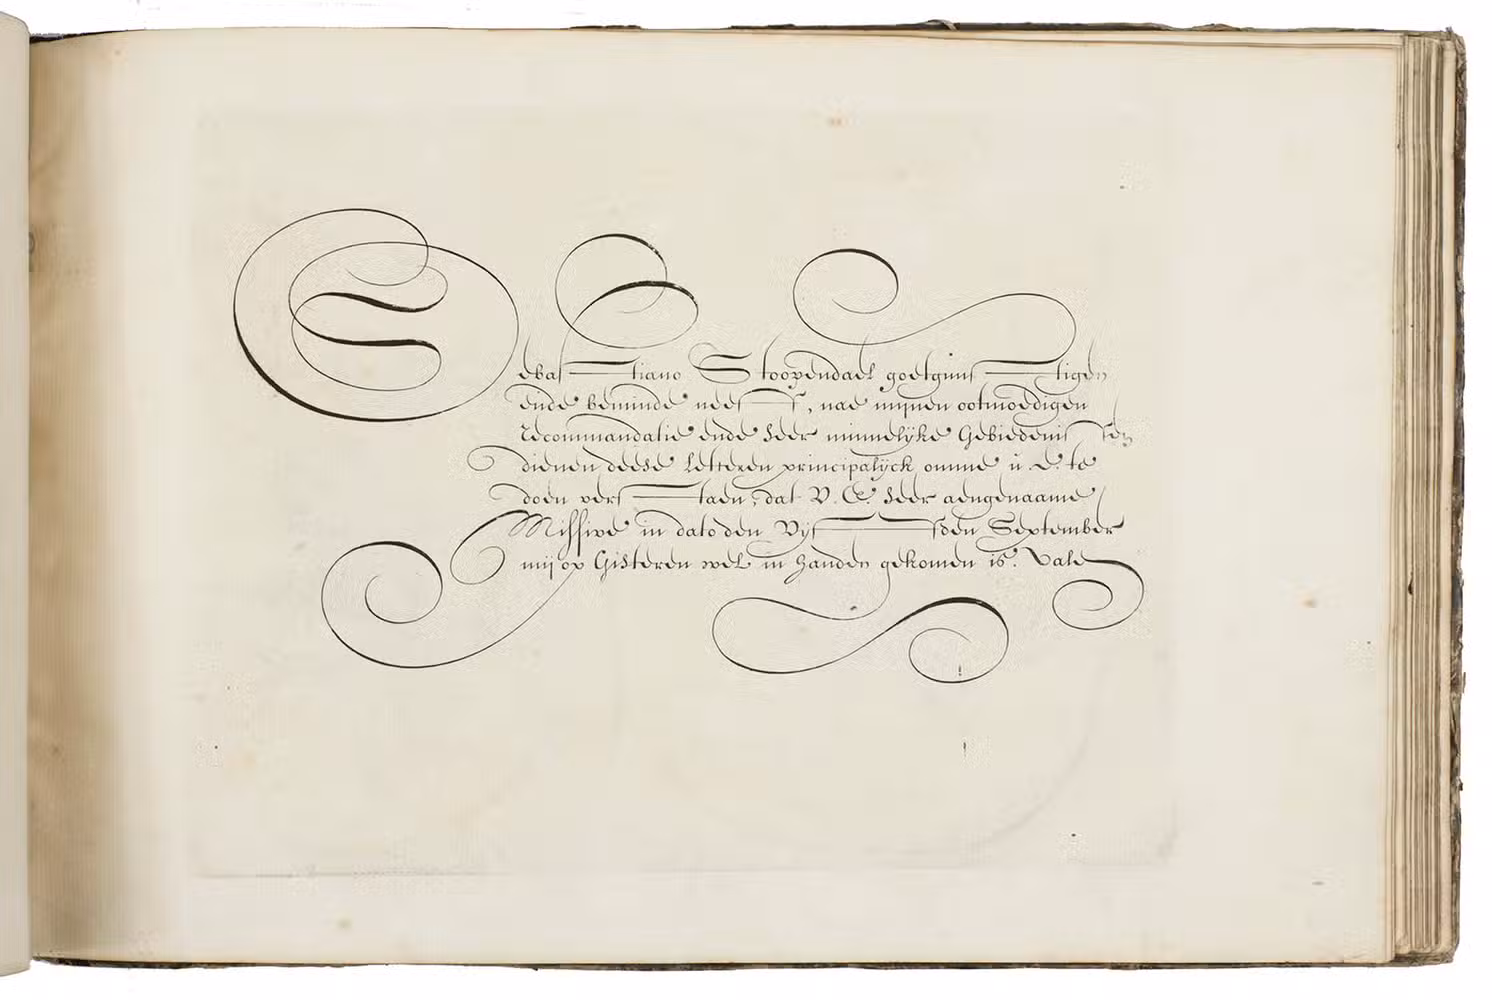 Sebastiano Stoopendael goetgunstigen
ende beminde neef, nae mijnen ootmoedigen
recommandatie ende seer minnelyke Gebiedenissen
dienen deese letteren principalyck omme u. e. te
doen verstaen, dat V. E. seer aengenaame
Missive in dato den Vijfden September
mij op Gisteren wel in handen gekomen is. Vale